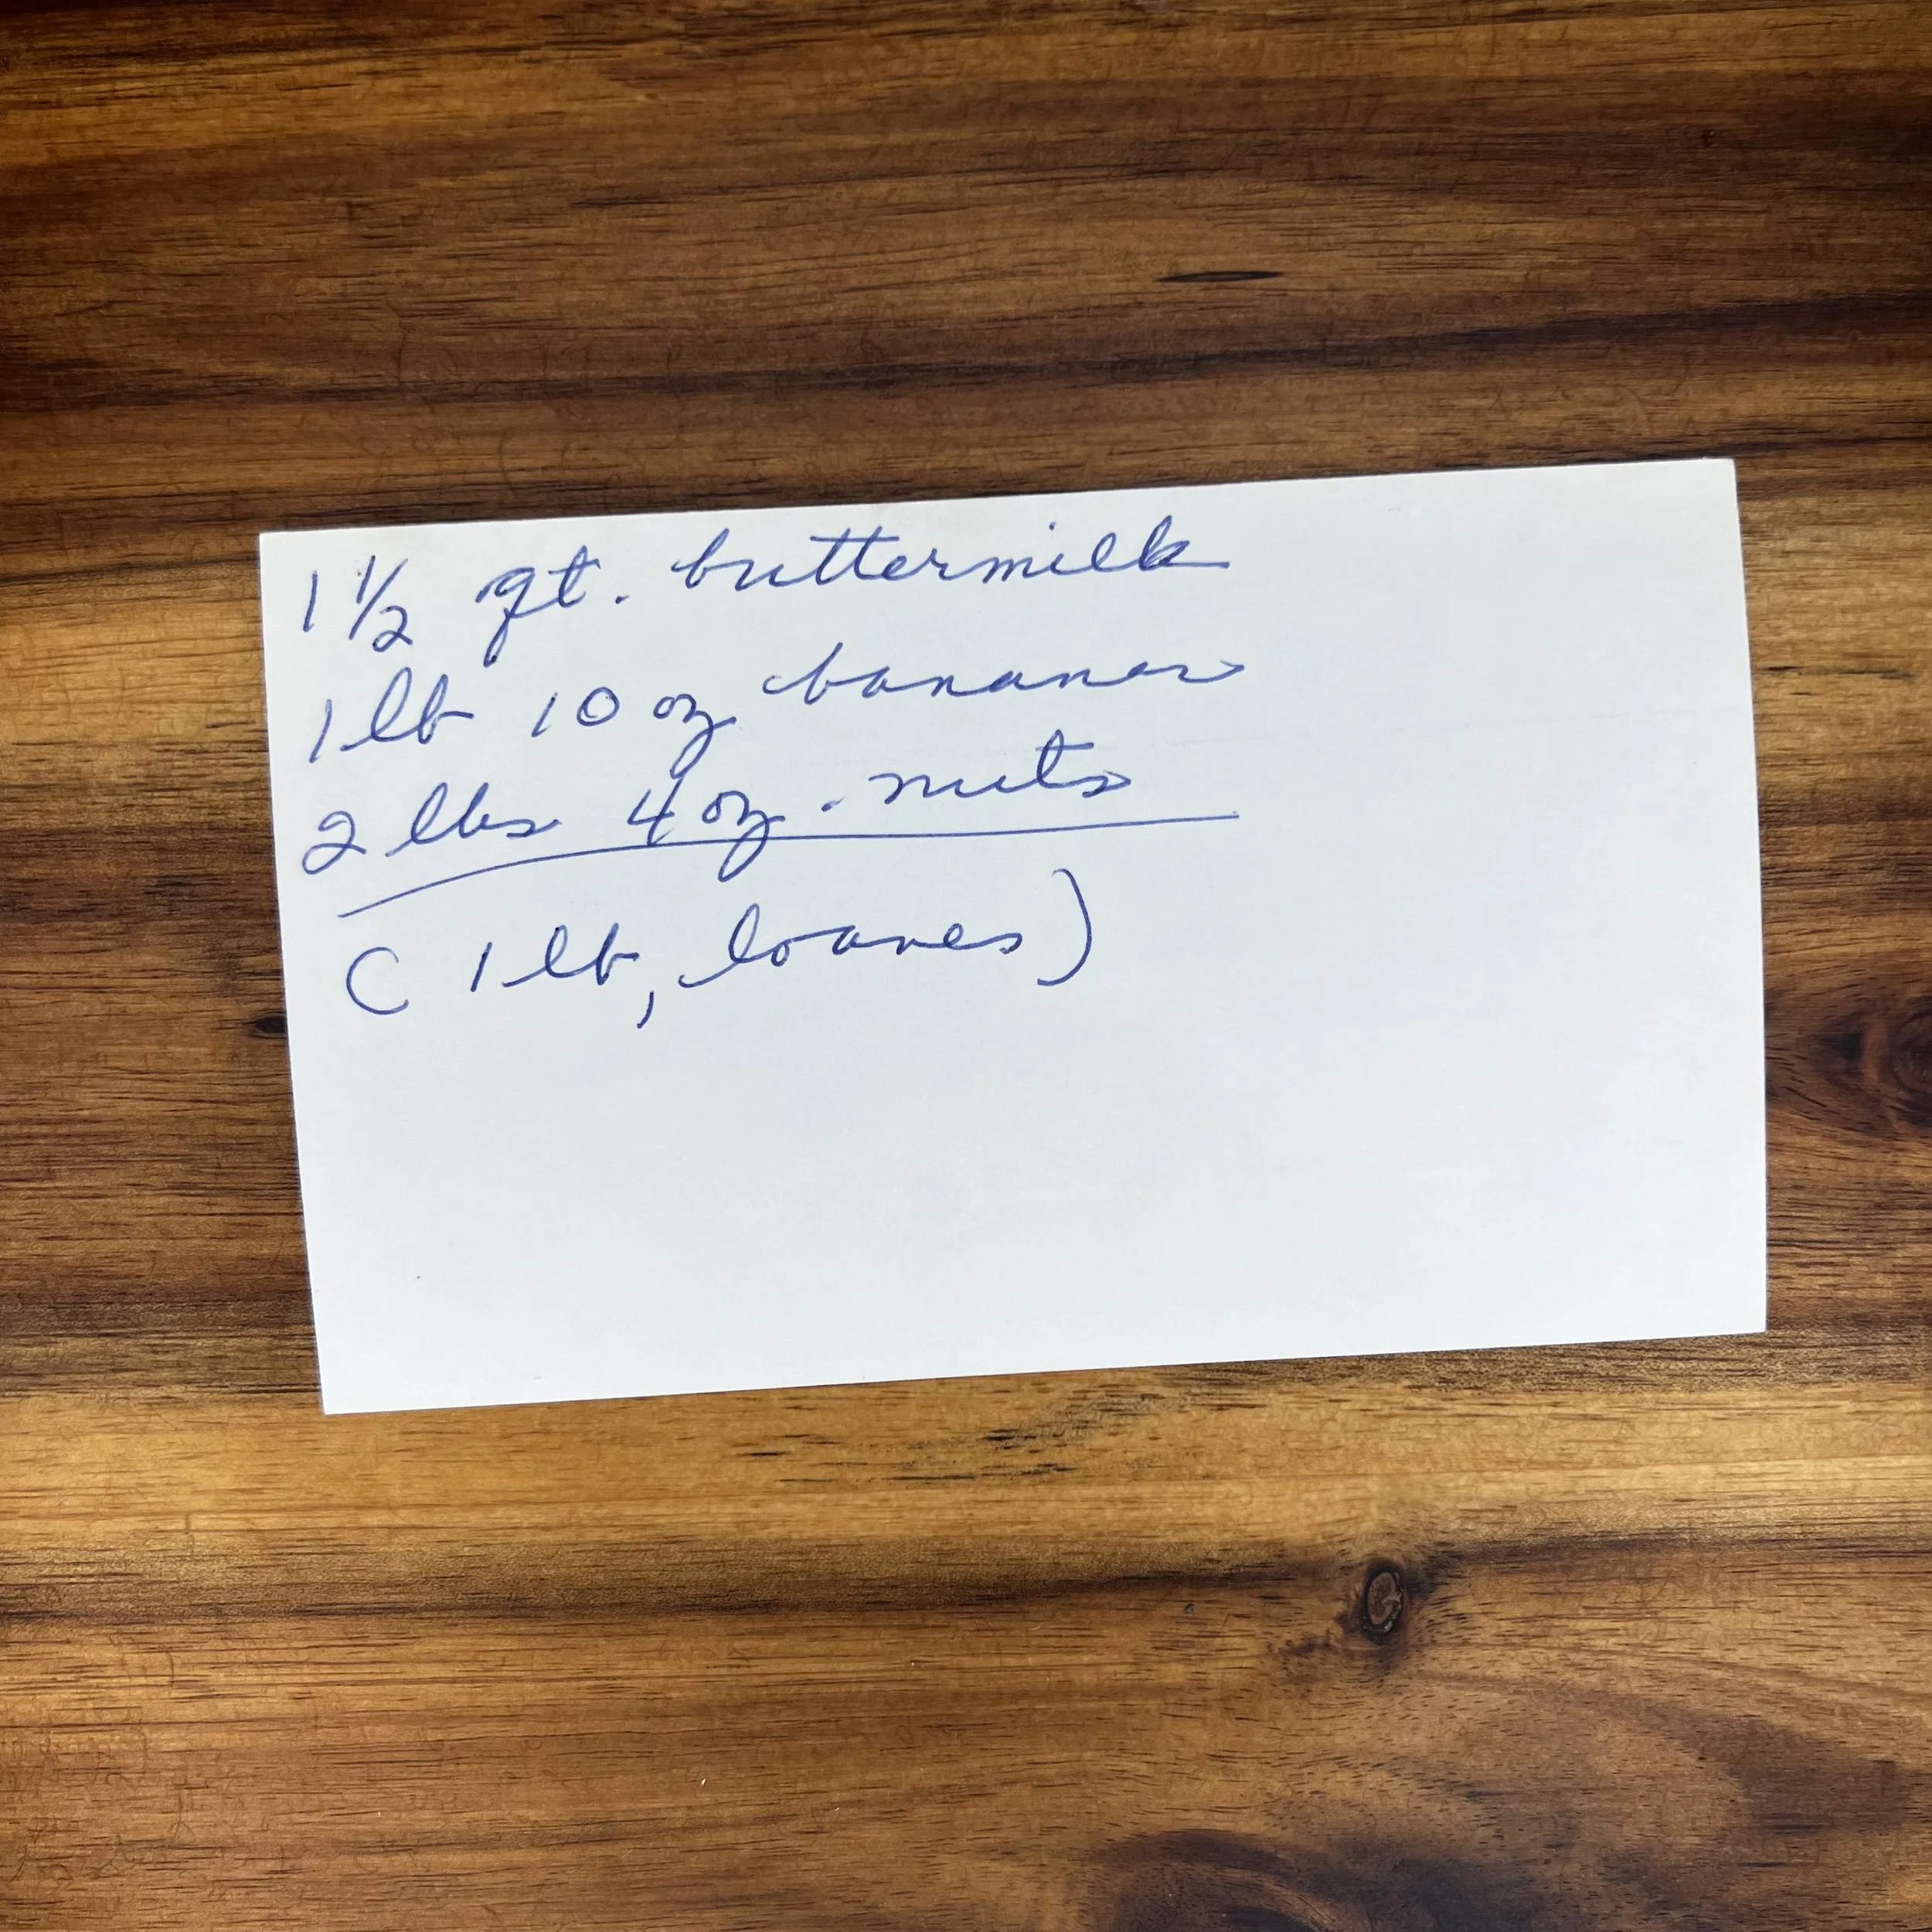 1 1/2 qt. buttermilk
1 lb 10 oz bananas
2 lbs 4 oz. nuts
( 1 lb, loaves)